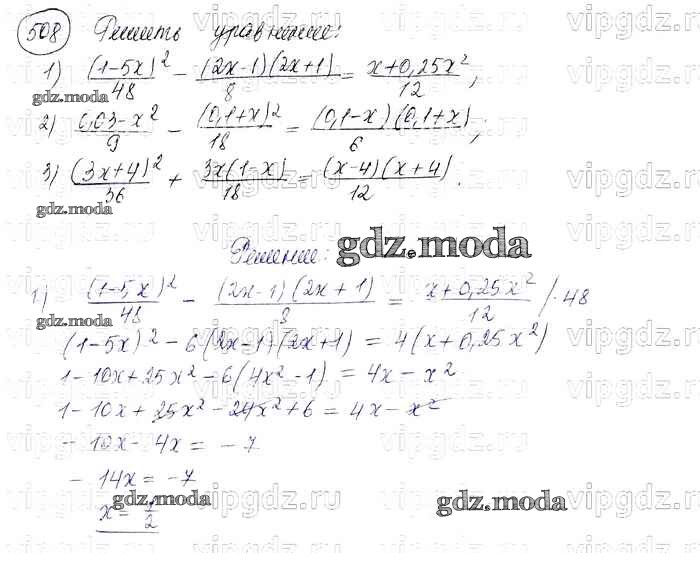 508 Решить уравнение:
1) (1-5x)²/48 - (2x-1)(2x+1)/8 = x+0,25x²/12;
gdz.moda
2) 0,03-x²/9 - (0,1+x)²/18 = (0,1-x)(0,1+x)/6;
3) (3x+4)²/36 + 3x(1-x)/18 = (x-4)(x+4)/12.
gdz.moda
Решение: gdz.moda
1) (1-5x)²/48 - (2x-1)(2x+1)/8 = x+0,25x²/12 /·48
gdz.moda
(1-5x)²-6(2x-1)(2x+1) = 4(x+0,25x²)
1-10x+25x²-6(4x²-1) = 4x-x²
1-10x+25x²-24x²+6 = 4x-x²
-10x-4x = -7
-14x = -7
gdz.moda gdz.moda
x = 1/2
vipgdz.ru vipgdz.ru vipgdz.ru